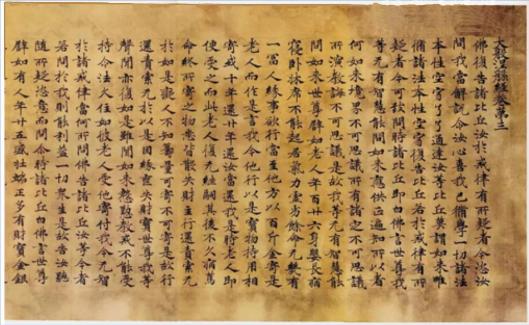 大般涅槃經卷第三
佛復告諸比丘汝於戒律有所疑者今恣汝
問我當解說令汝心喜我已脩學一切諸法
本性空寂了了通達汝等比丘莫謂如來唯
脩諸法本性空寂復告諸比丘若於戒律有所
疑者今可致問時諸比丘即白佛言世尊我
等无有智慧能問如來應供正遍知所以者
何如來境界不可思議所有諸定不可思議
所演教誨不可思議是故我等无有智慧能
問如來世尊譬如老人年百廿身嬰長病
寢臥床席不能起居氣力虛劣餘命无幾有
一富人緣事欲行當至他方以百斤金寄是
老人而作是言我今他行以是寶物持用相
寄或十年還廿年還汝當還我是時老人即
便受之而此老人復无繼嗣其後不久病篤
命終所寄之物悉皆散失財主行還責索无
於如是癡人不知籌量可寄不可寄是故行
還責索无於以是因緣喪失財寶世尊我等
聲聞亦復如是雖聞如來慇懃教戒不能受
持令法久住如彼老人受他寄付我今无智
於諸戒律當何所問佛告諸比丘汝等今者
若問於我則能利益一切眾生是故告汝聽
隨所疑恣意而問時諸比丘白佛言世尊
譬如有人年廿五盛壯端正多有財寶金銀